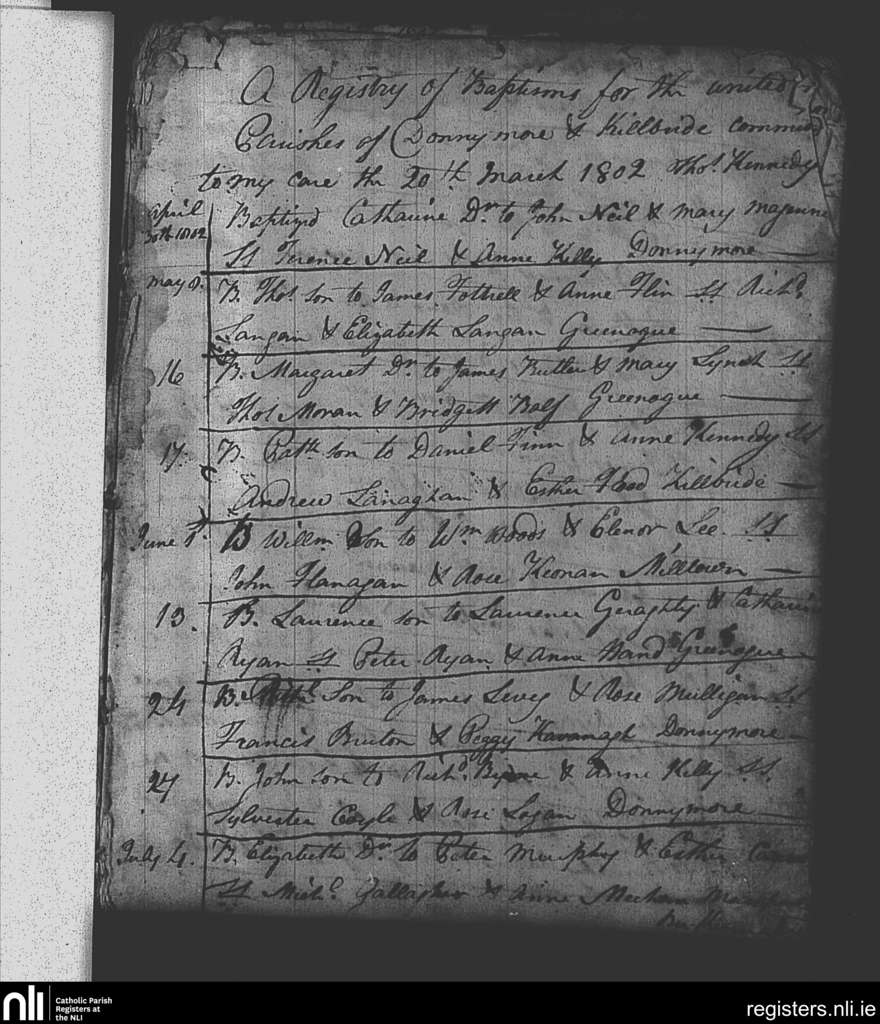 A Registry of Baptisms for the united
Parishes of Donnymore & Killbride committed
to my care the 20th March 1802 Thos. Kennedy
April 30th 1802 Baptized Catharine Dr. to John Neil & Mary
SS Terence Neil & Anne Kelly Donnymore
May 8. B. Thos. son to James Fottrell & Anne Flin SS Richd.
Langan & Elizabeth Langan Greenogue
16 B. Margaret Dr. to James & Mary Lynch SS
Thos Moran & Bridgett Balf Greenogue
17. B. Patk son to Daniel Finn & Anne Kennedy SS
Andrew Lanaghan & Esther Hood Killbride
June 1st. B Willm. Son to Wm Woods & Elenor Lee SS
John Flanagan & Rose Keonan Milltown
13. B. Laurence son to Laurence Geraghty & Catharine
Ryan SS Peter Ryan & Anne Hand Greenogue
24 B. Son to James Levey & Rose Mulligan SS
Francis Bruton & Peggy Kavanagh Donnymore
27 B. John son to Richd. Byrne & Anne Kelly SS.
Sylvester Coyle & Rose Logan Donnymore
July 4. B. Elizabeth Dr. to Peter Murphy & Esther
SS Michl. Gallagher & Anne Meehan
nli Catholic Parish
Registers at
the NLI
registers.nli.ie